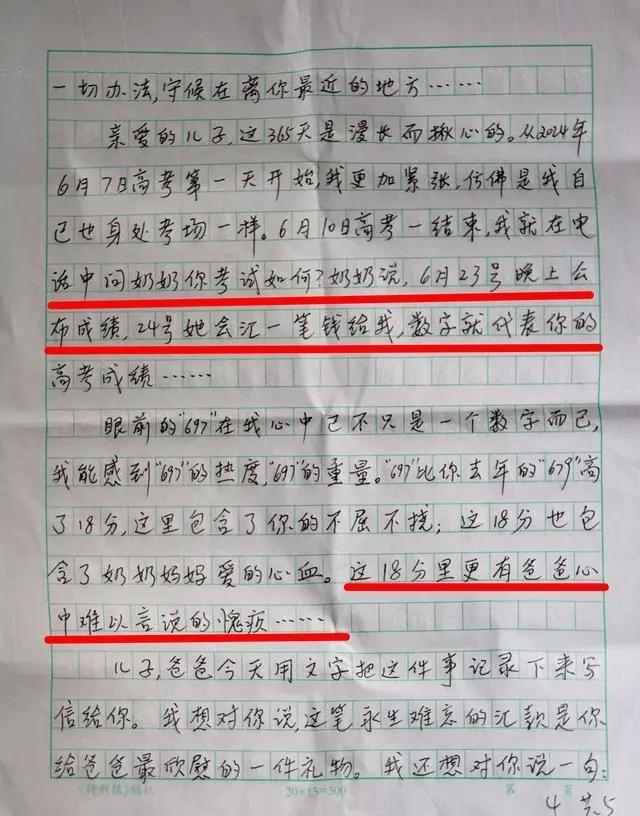 一切办法,守候在离你最近的地方……
亲爱的儿子,这365天是漫长而揪心的。从2024年
6月7日高考第一天开始,我更加紧张,仿佛是我自
己也身处考场一样。6月10日高考一结束,我就在电
话中问奶奶你考试如何?奶奶说,6月23号晚上公
布成绩,24号她会汇一笔钱给我,数字就代表你的
高考成绩……
眼前的"697"在我心中已不只是一个数字而已,
我能感到"697"的热度,"697"的重量。"697"比你去年的"679"高
了18分,这里包含了你的不屈不挠;这18分也包
含了奶奶妈妈爱的心血。这18分里更有爸爸心
中难以言说的愧疚……
儿子,爸爸今天用文字把这件事记录下来写
信给你。我想对你说,这笔永生难忘的汇款是你
给爸爸最欣慰的一件礼物。我还想对你说一句:
20×15=300
第 页
4 共5